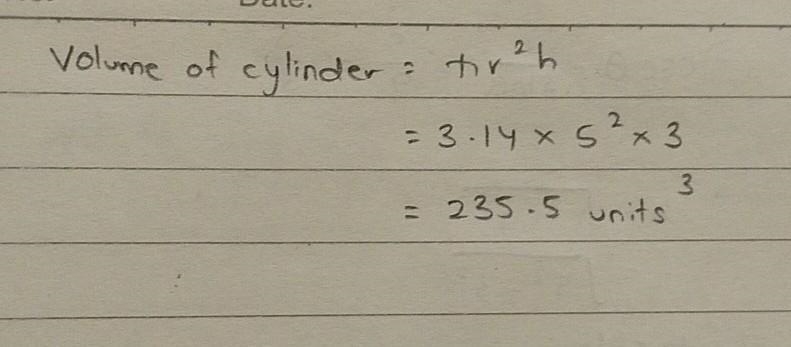 Date:
Volume of cylinder = πr²h
= 3.14 × 5² × 3
= 235.5 units³